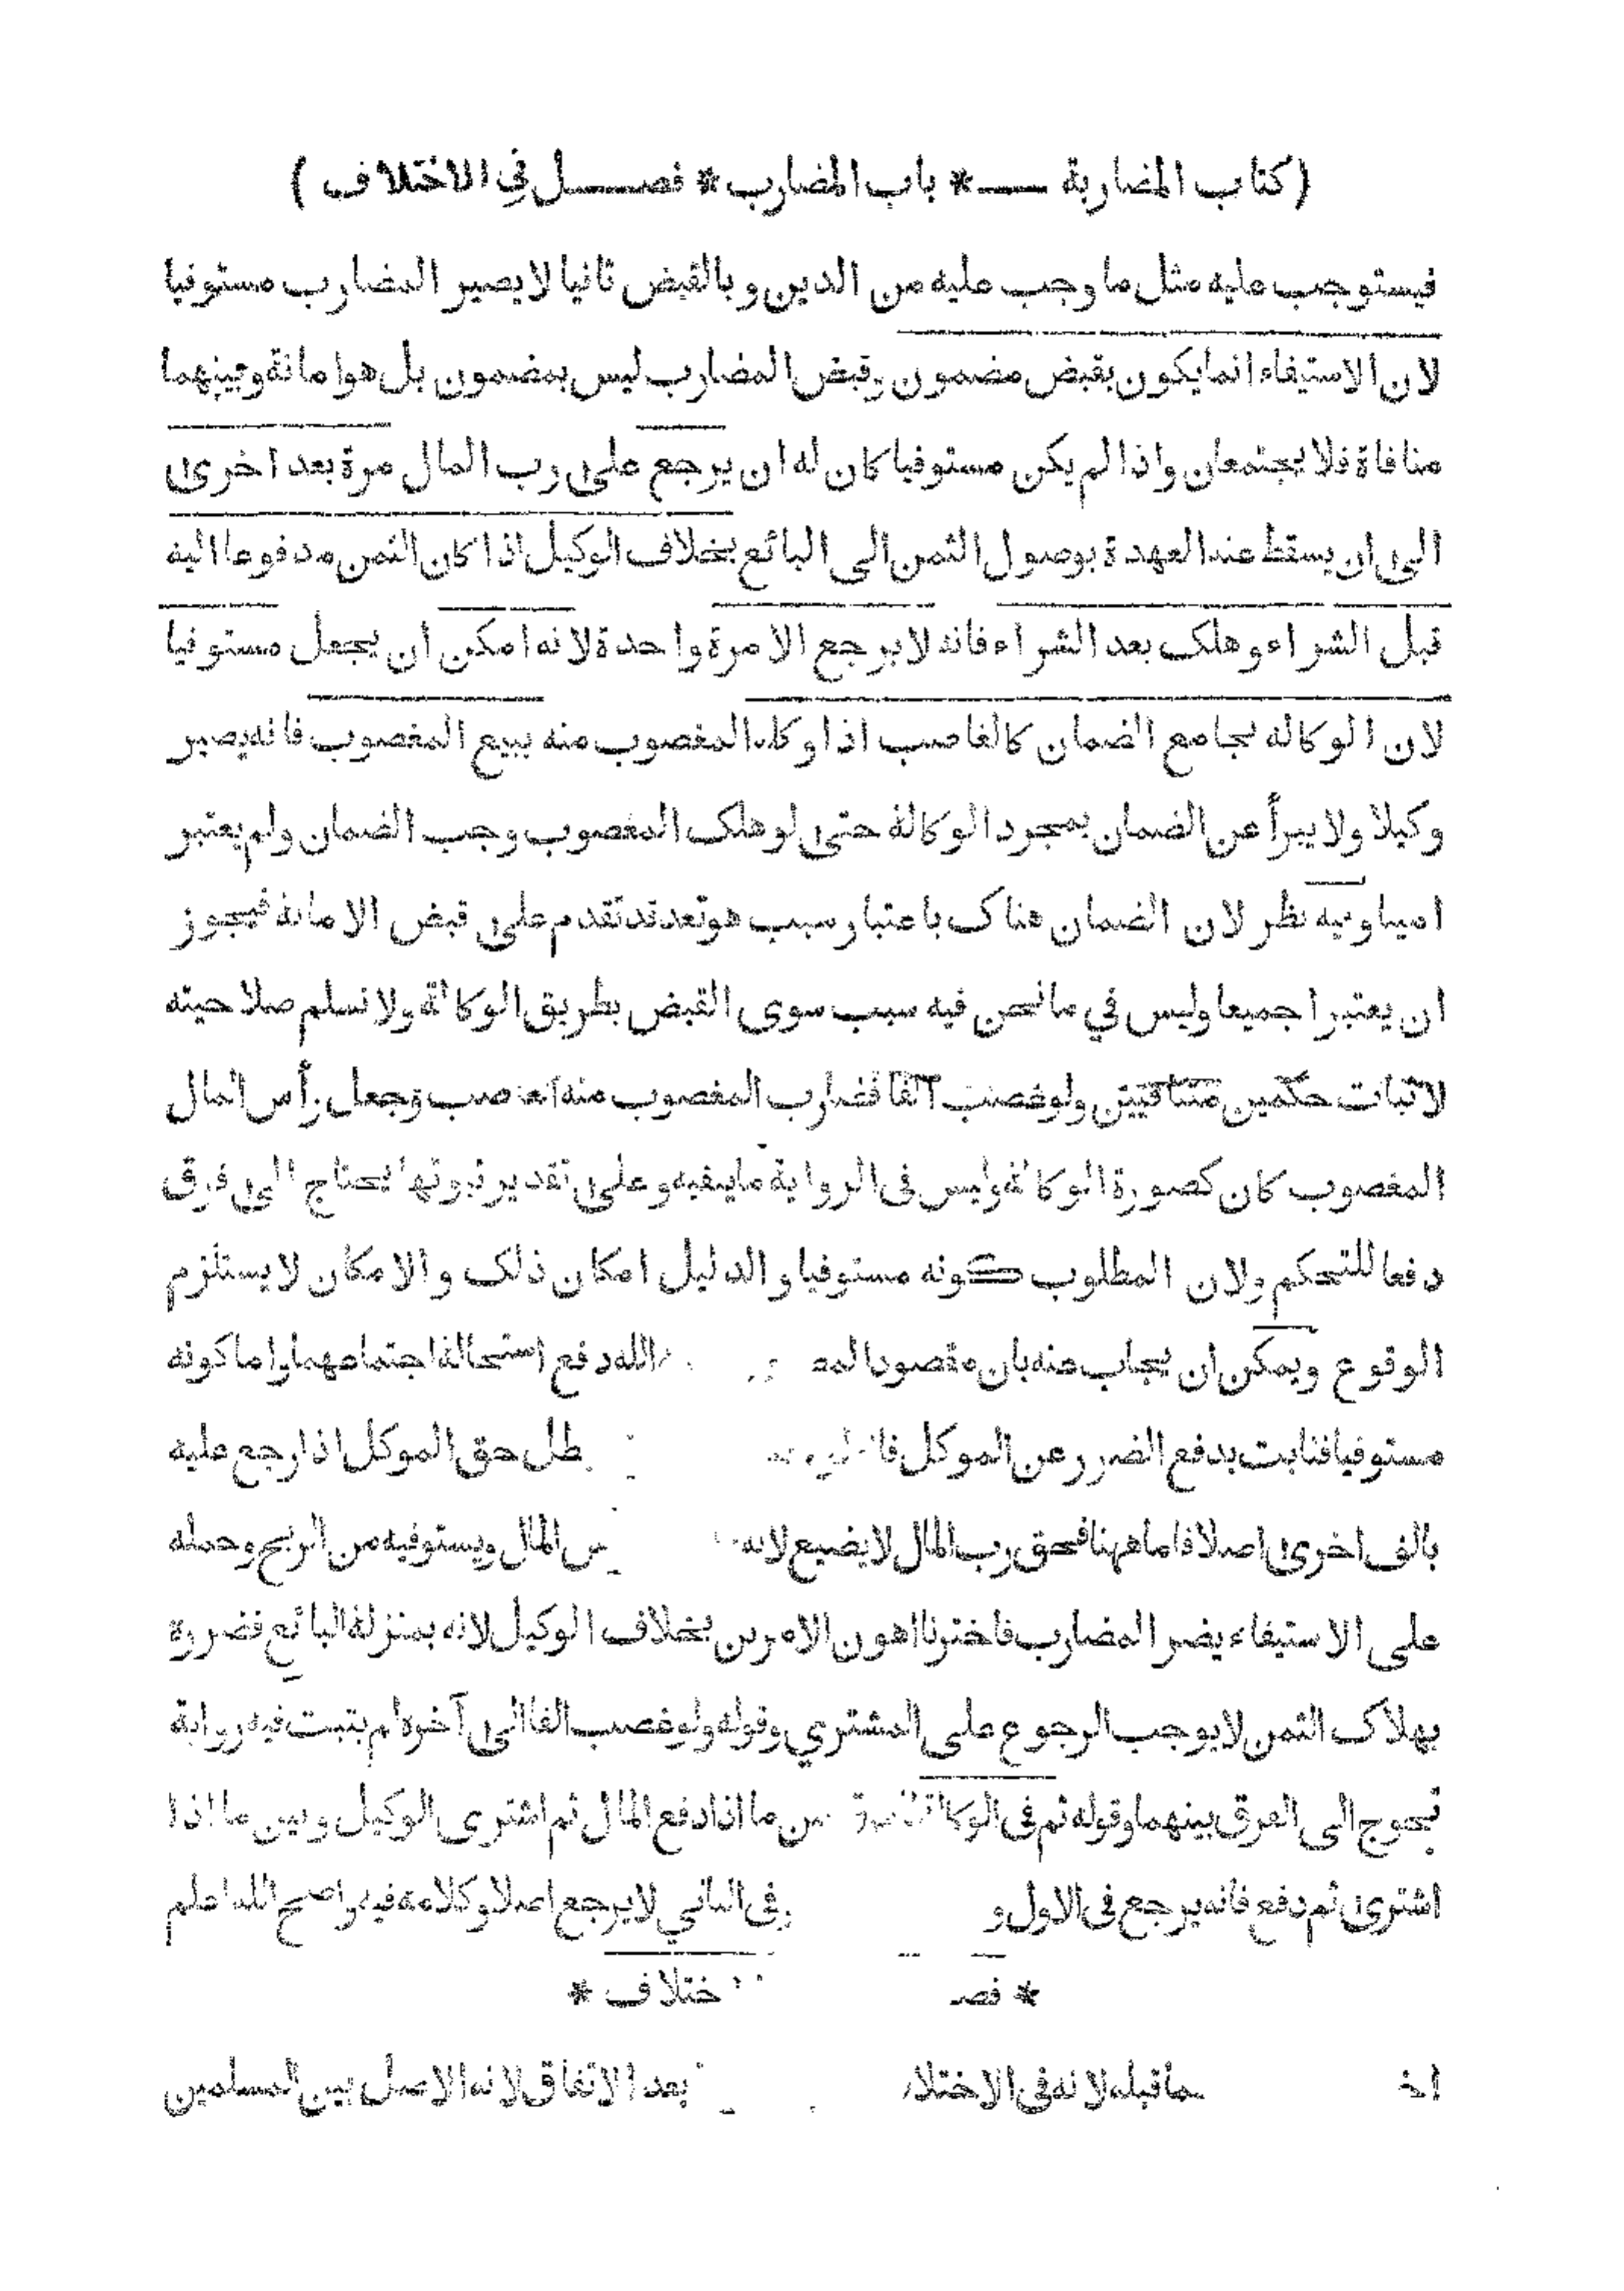 ( كتاب المضاربة — * باب المضارب * فصل في الاختلاف )
فيستوجب عليه مثل ما وجب عليه من الدين و بالقبض ثانيا لا يصير المضارب مستوفيا
لان الاستيفاء انما يكون بقبض مضمون وقبض المضارب ليس بمضمون بل هو امانة وبينهما
منافاة فلا يجتمعان واذا لم يكن مستوفيا كان له ان يرجع على رب المال مرة بعد اخرى
الى ان يسقط عنه العهدة بوصول الثمن الى البائع بخلاف الوكيل اذا كان الثمن مدفوعا اليه
قبل الشراء وهلك بعد الشراء فانه لا يرجع الا مرة واحدة لانه امكن ان يجعل مستوفيا
لان الوكالة تجامع الضمان كالغاصب اذا وكله المغصوب منه ببيع المغصوب فانه يصير
وكيلا ولا يبرأ عن الضمان بمجرد الوكالة حتى لو هلك المغصوب وجب الضمان ولم يعتبر
امينا وفيه نظر لان الضمان هناك باعتبار سبب هو تعد قد تقدم على قبض الامانة فيجوز
ان يعتبرا جميعا وليس في ما نحن فيه سبب سوى القبض بطريق الوكالة ولا نسلم صلاحيته
لاثبات حكمين متنافيين ولو غصب الفا فضارب المغصوب منه الغاصب وجعل رأس المال
المغصوب كان كصورة الوكالة وليس في الرواية ما ينفيه وعلى تقدير ثبوتها يحتاج الى فرق
دفعا للتحكم ولان المطلوب كونه مستوفيا و الدليل امكان ذلك والامكان لا يستلزم
الوقوع ويمكن ان يجاب عنه بان مقصود الله دفع استحالة اجتماعهما واما كونه
مستوفيا فثابت بدفع الضرر عن الموكل حق الموكل اذا رجع عليه
بالف اخرى اصلا فاما ههنا فحق رب المال لا يضيع لانه المال ويستوفيه من الربح وحمله
على الاستيفاء يضر المضارب فاخترنا اهون الامرين بخلاف الوكيل لانه بمنزلة البائع فضرره
بهلاك الثمن لا يوجب الرجوع على المشتري وقوله ولو غصب الفا الى آخره لم يثبت فيه رواية
تحوج الى الفرق بينهما وقوله ثم في الوكالة ما اذا دفع المال ثم اشترى الوكيل وبين ما اذا
اشترى ثم دفع فانه يرجع في الاول و وفي الثاني لا يرجع اصلا وكلامه فيه واضح الله اعلم
* *
ما قبله لانه في بعد الاتفاق لانه الاصل بين المسلمين